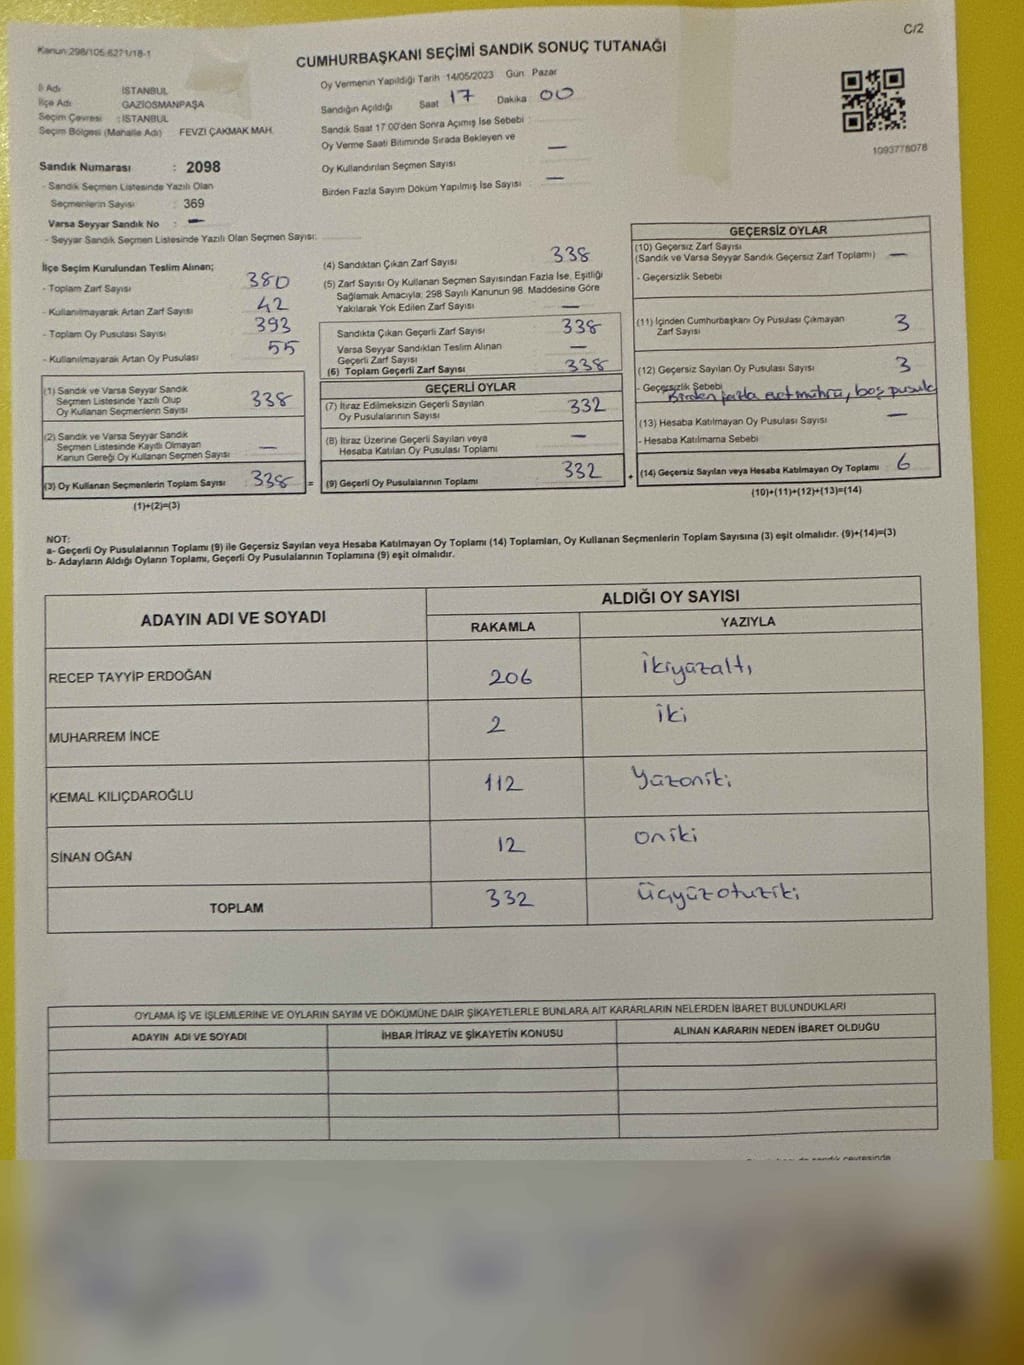 Kanun:298/105-6271/18-1
C/2
CUMHURBAŞKANI SEÇİMİ SANDIK SONUÇ TUTANAĞI
İl Adı İSTANBUL
İlçe Adı GAZİOSMANPAŞA
Seçim Çevresi : İSTANBUL
Seçim Bölgesi (Mahalle Adı) FEVZİ ÇAKMAK MAH.
Oy Vermenin Yapıldığı Tarih 14/05/2023 Gün Pazar
Sandığın Açıldığı Saat 17 Dakika 00
Sandık Saat 17:00'den Sonra Açımış İse Sebebi :
Oy Verme Saati Bitiminde Sırada Bekleyen ve
Oy Kullandırılan Seçmen Sayısı —
Birden Fazla Sayım Döküm Yapılmış İse Sayısı —
1093778078
Sandık Numarası : 2098
- Sandık Seçmen Listesinde Yazılı Olan
Seçmenlerin Sayısı : 369
Varsa Seyyar Sandık No : —
- Seyyar Sandık Seçmen Listesinde Yazılı Olan Seçmen Sayısı:
İlçe Seçim Kurulundan Teslim Alınan;
- Toplam Zarf Sayısı 380
- Kullanılmayarak Artan Zarf Sayısı 42
- Toplam Oy Pusulası Sayısı 393
- Kullanılmayarak Artan Oy Pusulası 55
(1) Sandık ve Varsa Seyyar Sandık
Seçmen Listesinde Yazılı Olup
Oy Kullanan Seçmenlerin Sayısı 338
(2) Sandık ve Varsa Seyyar Sandık
Seçmen Listesinde Kayıtlı Olmayan
Kanun Gereği Oy Kullanan Seçmen Sayısı —
(3) Oy Kullanan Seçmenlerin Toplam Sayısı 338 =
(1)+(2)=(3)
(4) Sandıktan Çıkan Zarf Sayısı 338
(5) Zarf Sayısı Oy Kullanan Seçmen Sayısından Fazla İse, Eşitliği
Sağlamak Amacıyla; 298 Sayılı Kanunun 98. Maddesine Göre
Yakılarak Yok Edilen Zarf Sayısı —
Sandıkta Çıkan Geçerli Zarf Sayısı 338
Varsa Seyyar Sandıktan Teslim Alınan
Geçerli Zarf Sayısı —
(6) Toplam Geçerli Zarf Sayısı 338
GEÇERLİ OYLAR
(7) İtiraz Edilmeksizin Geçerli Sayılan
Oy Pusulalarının Sayısı 332
(8) İtiraz Üzerine Geçerli Sayılan veya
Hesaba Katılan Oy Pusulası Toplamı —
(9) Geçerli Oy Pusulalarının Toplamı 332 +
GEÇERSİZ OYLAR
(10) Geçersiz Zarf Sayısı
(Sandık ve Varsa Seyyar Sandık Geçersiz Zarf Toplamı) —
- Geçersizlik Sebebi
(11) İçinden Cumhurbaşkanı Oy Pusulası Çıkmayan
Zarf Sayısı 3
(12) Geçersiz Sayılan Oy Pusulası Sayısı 3
- Geçersizlik Sebebi
Birden fazla evet mührü, boş pusula
(13) Hesaba Katılmayan Oy Pusulası Sayısı —
- Hesaba Katılmama Sebebi
(14) Geçersiz Sayılan veya Hesaba Katılmayan Oy Toplamı 6
(10)+(11)+(12)+(13)=(14)
NOT:
a- Geçerli Oy Pusulalarının Toplamı (9) ile Geçersiz Sayılan veya Hesaba Katılmayan Oy Toplamı (14) Toplamları, Oy Kullanan Seçmenlerin Toplam Sayısına (3) eşit olmalıdır. (9)+(14)=(3)
b- Adayların Aldığı Oyların Toplamı, Geçerli Oy Pusulalarının Toplamına (9) eşit olmalıdır.
ADAYIN ADI VE SOYADI ALDIĞI OY SAYISI
RAKAMLA YAZIYLA
RECEP TAYYİP ERDOĞAN 206 ikiyüzaltı
MUHARREM İNCE 2 iki
KEMAL KILIÇDAROĞLU 112 Yüzoniki
SİNAN OĞAN 12 oniki
TOPLAM 332 üçyüzotuziki
OYLAMA İŞ VE İŞLEMLERİNE VE OYLARIN SAYIM VE DÖKÜMÜNE DAİR ŞİKAYETLERLE BUNLARA AİT KARARLARIN NELERDEN İBARET BULUNDUKLARI
ADAYIN ADI VE SOYADI İHBAR İTİRAZ VE ŞİKAYETİN KONUSU ALINAN KARARIN NEDEN İBARET OLDUĞU